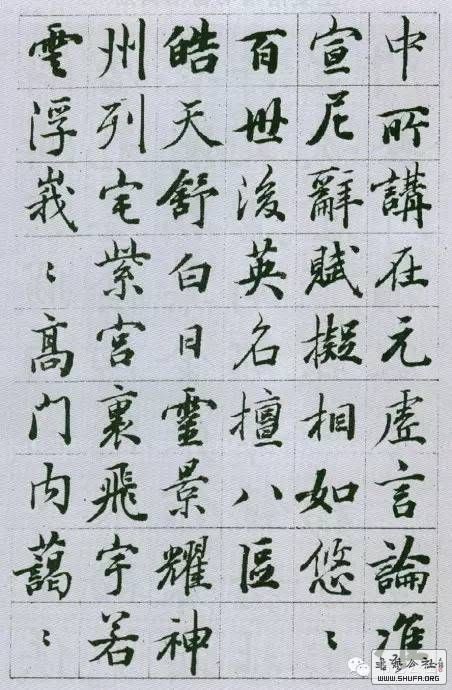 中所講在元虛言論准
宣尼辭賦擬相如悠〻
百世後英名擅八區
皓天舒白日靈景耀神
州列宅紫宮裏飛宇若
雲浮峩〻高門内藹〻
WWW.SHUFA.ORG